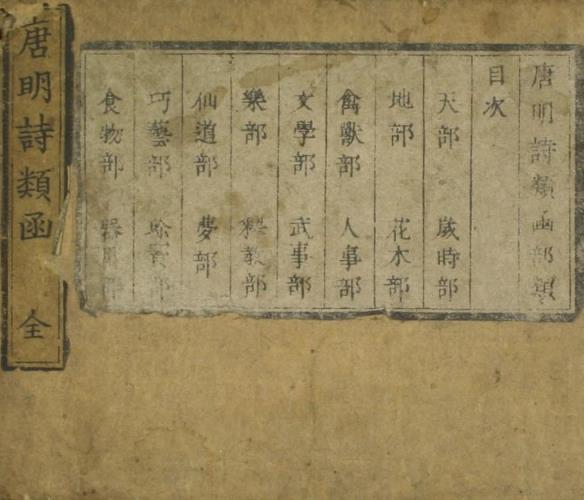 唐明詩類函部類
目次
天部 歲時部
地部 花木部
禽獸部 人事部
文學部 武事部
樂部 釋教部
仙道部 夢部
巧藝部 珍寶部
食物部 器用部
唐明詩類函 全